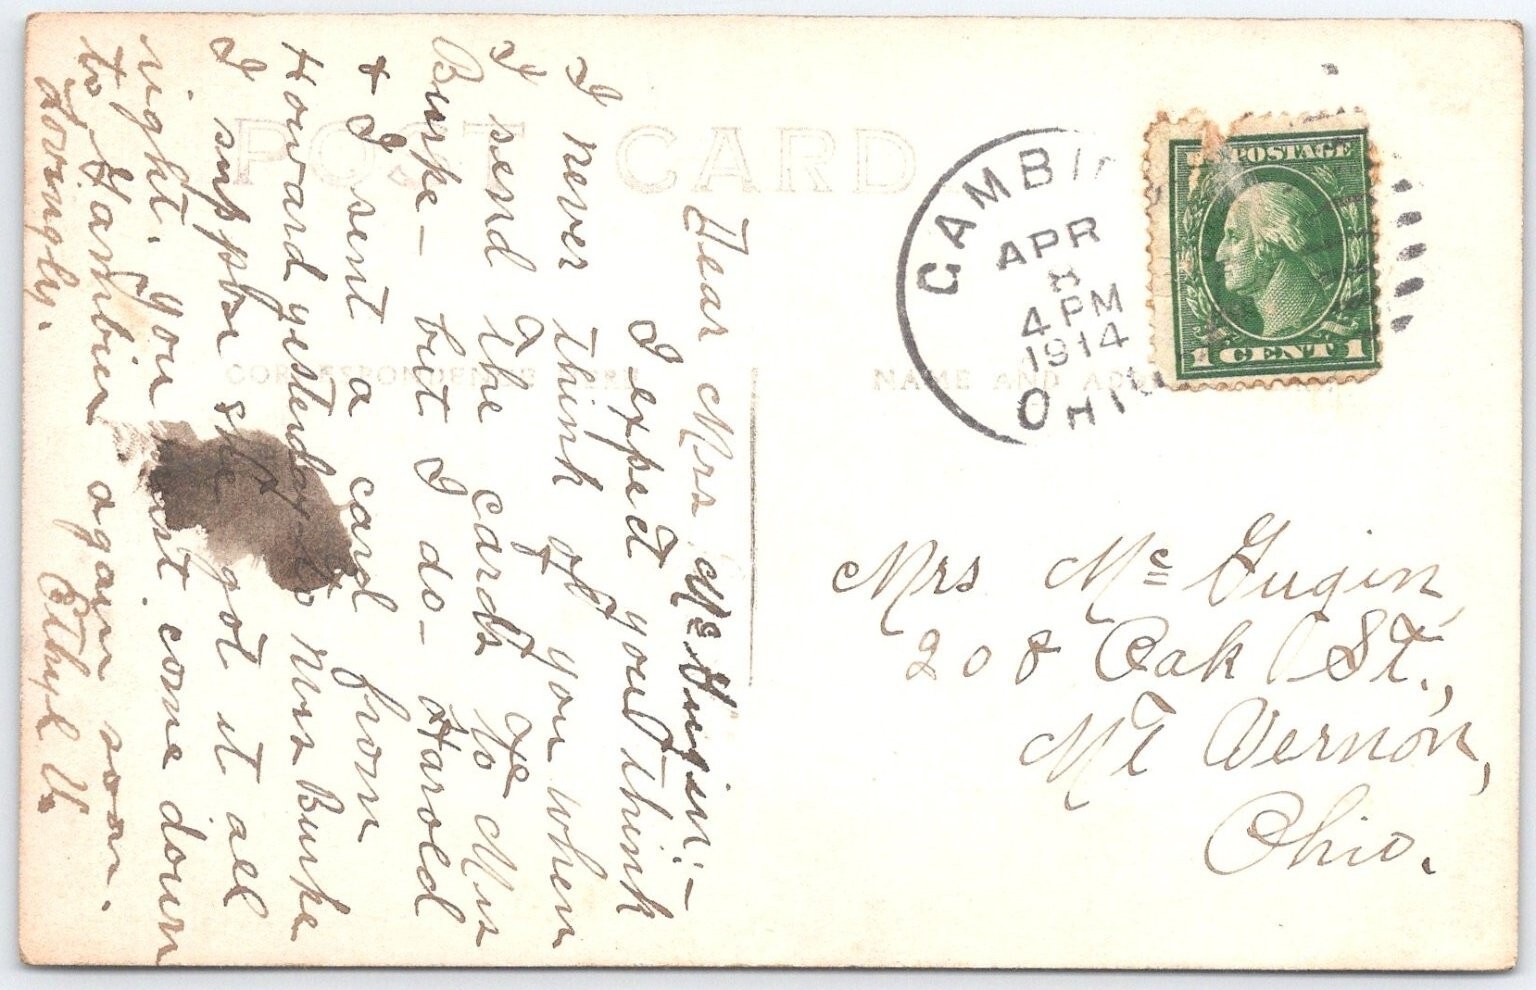 POST CARD
CORRESPONDENCE HERE
NAME AND ADD
GAMBI
APR
8
4 PM
1914
OHIO
U.S. POSTAGE
1 CENT 1
Mrs Mc Gugin,
208 Oak St.,
Mt Vernon,
Ohio.
Dear Mrs. McGugin:-
I expect you think
I never think of you when
I send the cards to Mrs
Burke - but I do - Harold
& I sent a card from
Howard yesterday to Mrs Burke
I suppose she got it all
right. You must come down
to Gambier again soon.
Lovingly. Ethyl V.